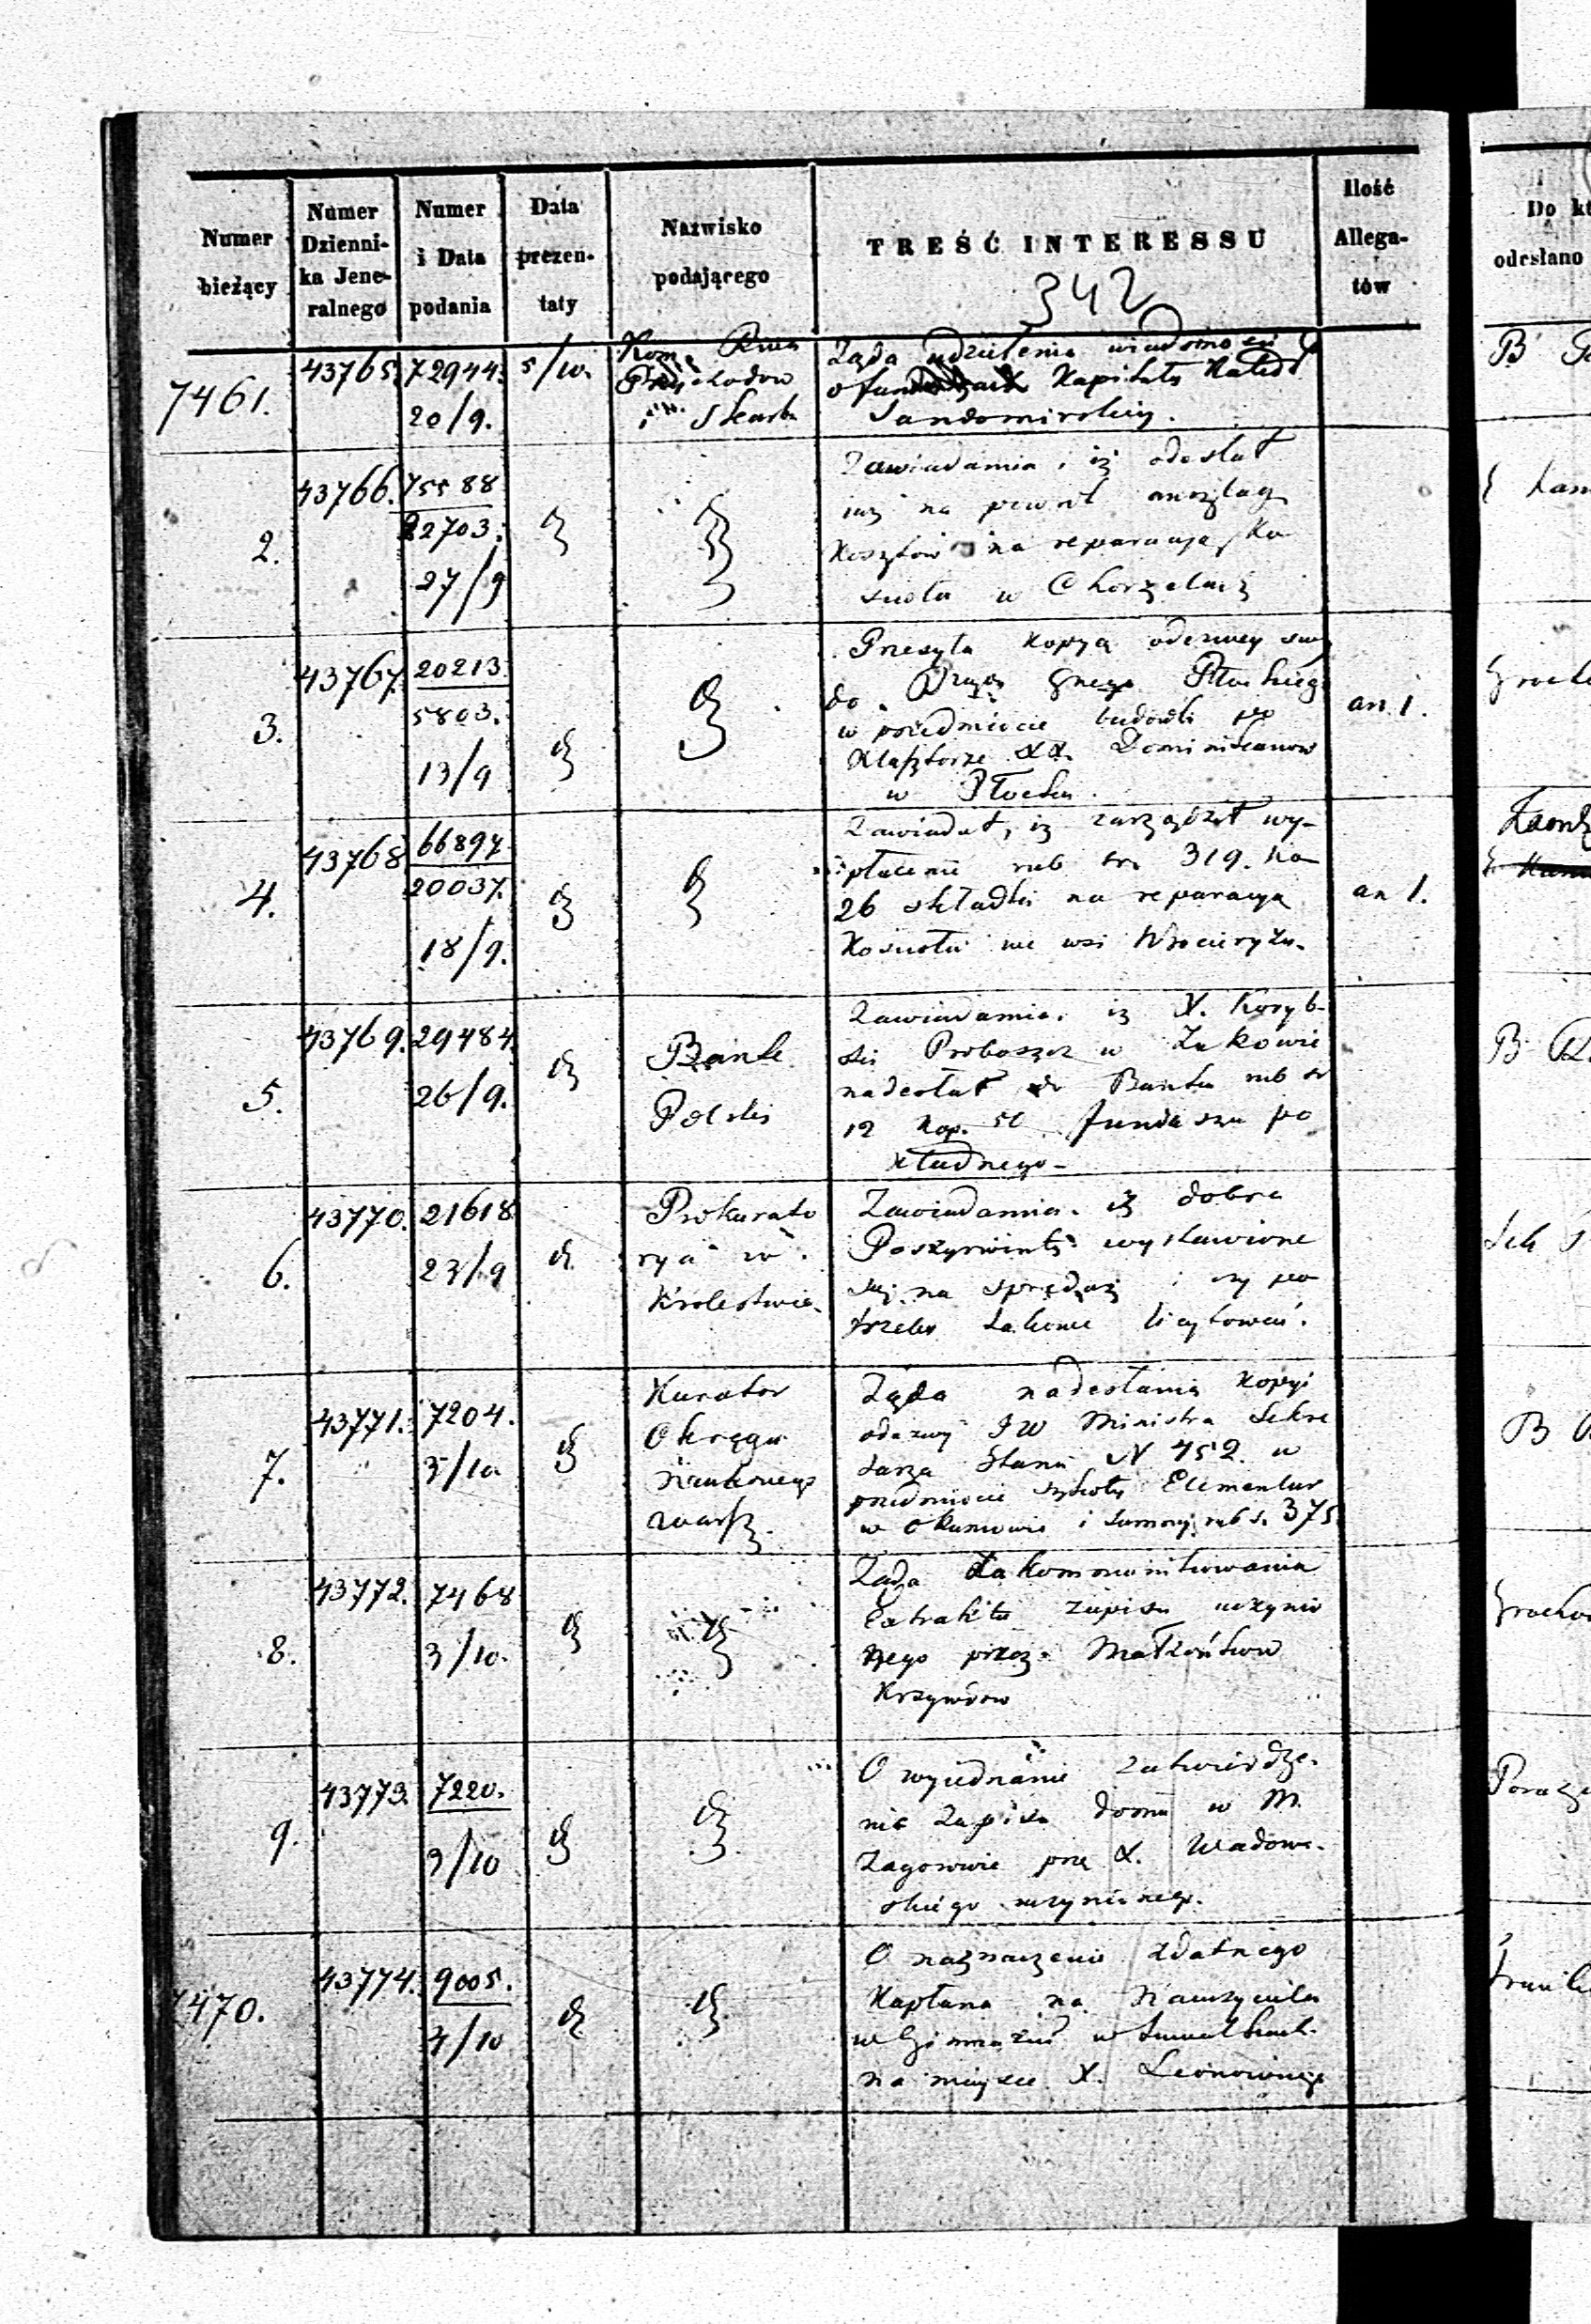 Numer bieżący
Numer Dzienni-ka Jene-ralnego
Numer i Data podania
Data prezen-taty
Nazwisko podającego
TREŚĆ INTERESSU
Ilość Allega-tów
Do kt
odesłano
342
7461. 43765. 72944. 20/9. 5/10.
Kom. Rzna
Przychodow
Skarbu
Ząda udzielenia wiadomości
o Kapitału Kated
Sandomirskiey.
B
2. 43766. 75588 22703. 27/9
Zawiadamia, iż odesłał
iuż na powrót anszlag
Kosztów na reparacyą Ko
scioła w Chorzelach
3. 43767. 20213 5803. 13/9
Przesyła kopyą odezwy swy
do Płockiego
w przedmiocie budowli po
Klasztorze XX. Dominikanow
w Płocku.
an. 1.
4. 43768 66897 20037. 18/9.
Zawiadał, iż zarządził wy-
płacenie rub sr. 319. ko
26 składki na reparacyą
Kościoła we wsi Wrocieryżu.
an 1.
5. 43769. 29484. 26/9.
Bank
Polski
Zawiadamia. iż X. Koryb-
ski Proboszcz w Żukowie
nadesłał do Banku rub sr
12 kop. 50 funduszu po
kładnego-
B
6. 43770. 21618 23/9
Prokurato
rya w
Krolestwie.
Zawiadamia. iż dobra
wystawione
są na sprzedaż i czy po
trzeba takowe licytować.
7. 43771. 7204. 3/10
Kurator
Okręgu
Naukowego
Warsz.
Ząda nadesłania kopyi
odezwy JW Ministra Sekre
tarza Stanu N 452. w
przedmiocie szkoły Elementar
w Okuniewie i summy rub s. 375.
B
8. 43772. 7468 3/10.
Ząda zakommunikowania
Extraktu zapisu uczynio
nego przez Małżonków
Krzywdow
9. 43773. 7220. 3/10
O wyiednanie zatwierdze-
nia Zapisu domu w M.
Zagorowie prze X. Wadow-
skiego uczynionego.
7470. 43774. 9005. 3/10
O naznaczenie zdatnego
Kapłana na Nauczyciela
w Gimnazium w Suwałkach
na mieysce X. Leonowicza